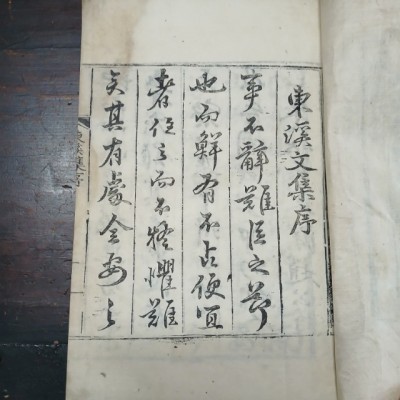 東溪文集序
事不辭難臣之節
也而鮮有不占便宜
者任之而不懼難
矣其有處全安之